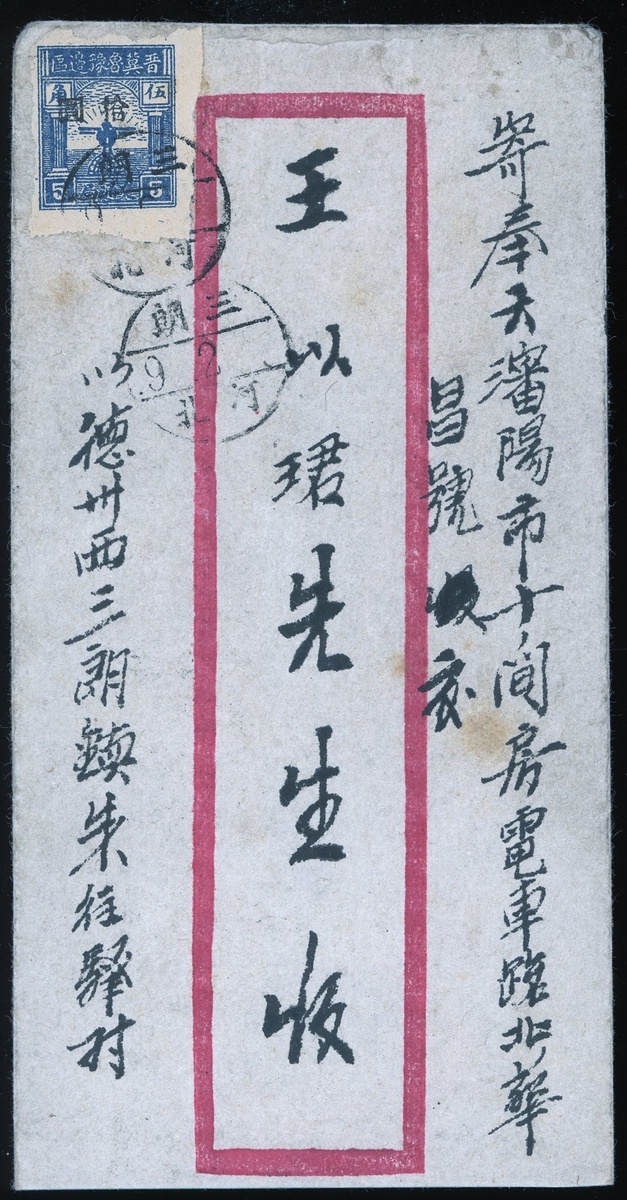 寄奉天瀋陽市十間房電車路北華
昌號收交
王以珺先生收
以德州西三朗鎮朱往驛村
晉冀魯豫邊區
伍角
拾圓
5 5
三朗
河北
三朗
9.2
河北